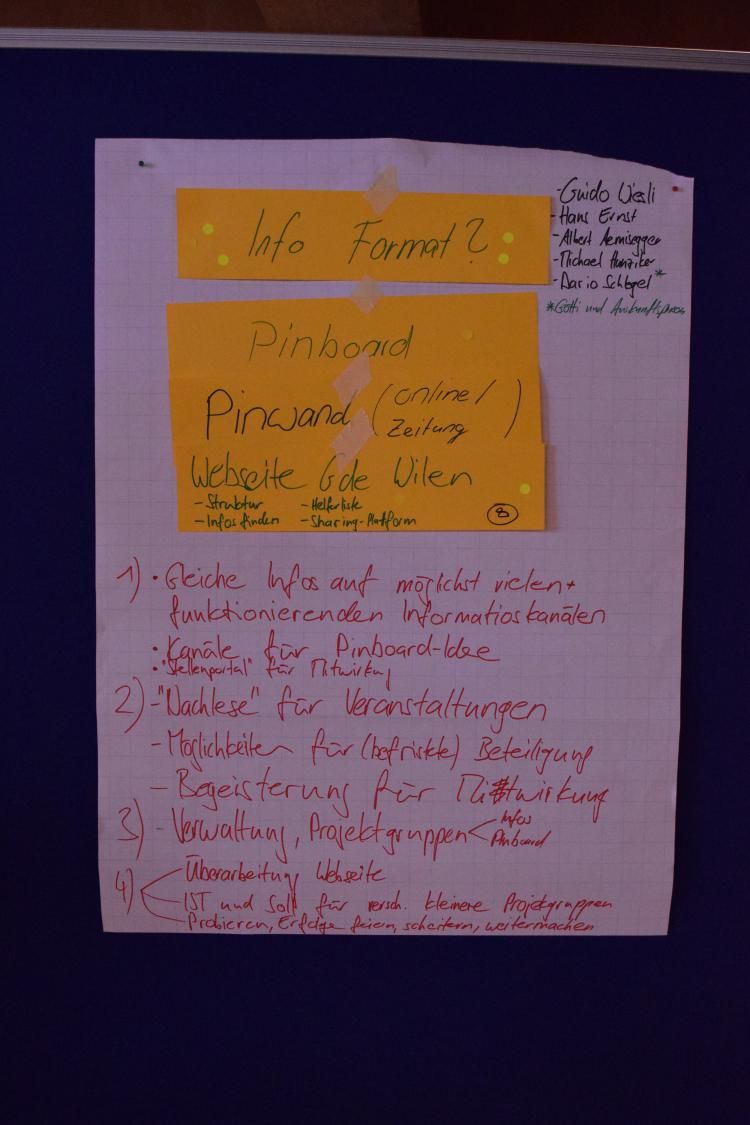 Info Format?
- Guido
- Hans Ernst
- Albert Aemisegger
- Michael Hunziker
- Dario Schlegel*
*Götti und
Pinboard
Pinwand (online/
Zeitung)
Webseite Gde Wilen
- Struktur - Helferliste
- Infos finden - Sharing-Plattform
8
1) • Gleiche Infos auf möglichst vielen +
funktionierenden Informatioskanälen
• Kanäle für Pinboard-Idee
• "Stellenportal" für Mitwirkung
2) - "Nachlese" für Veranstaltungen
- Möglichkeiten für (befristete) Beteiligung
- Begeisterung für Mitwirkung
3) - Verwaltung, Projektgruppen < Infos
Pinboard
4) Überarbeitung Webseite
IST und Soll für versch. kleinere Projektgruppen
Probieren, Erfolge feiern, scheitern, weitermachen